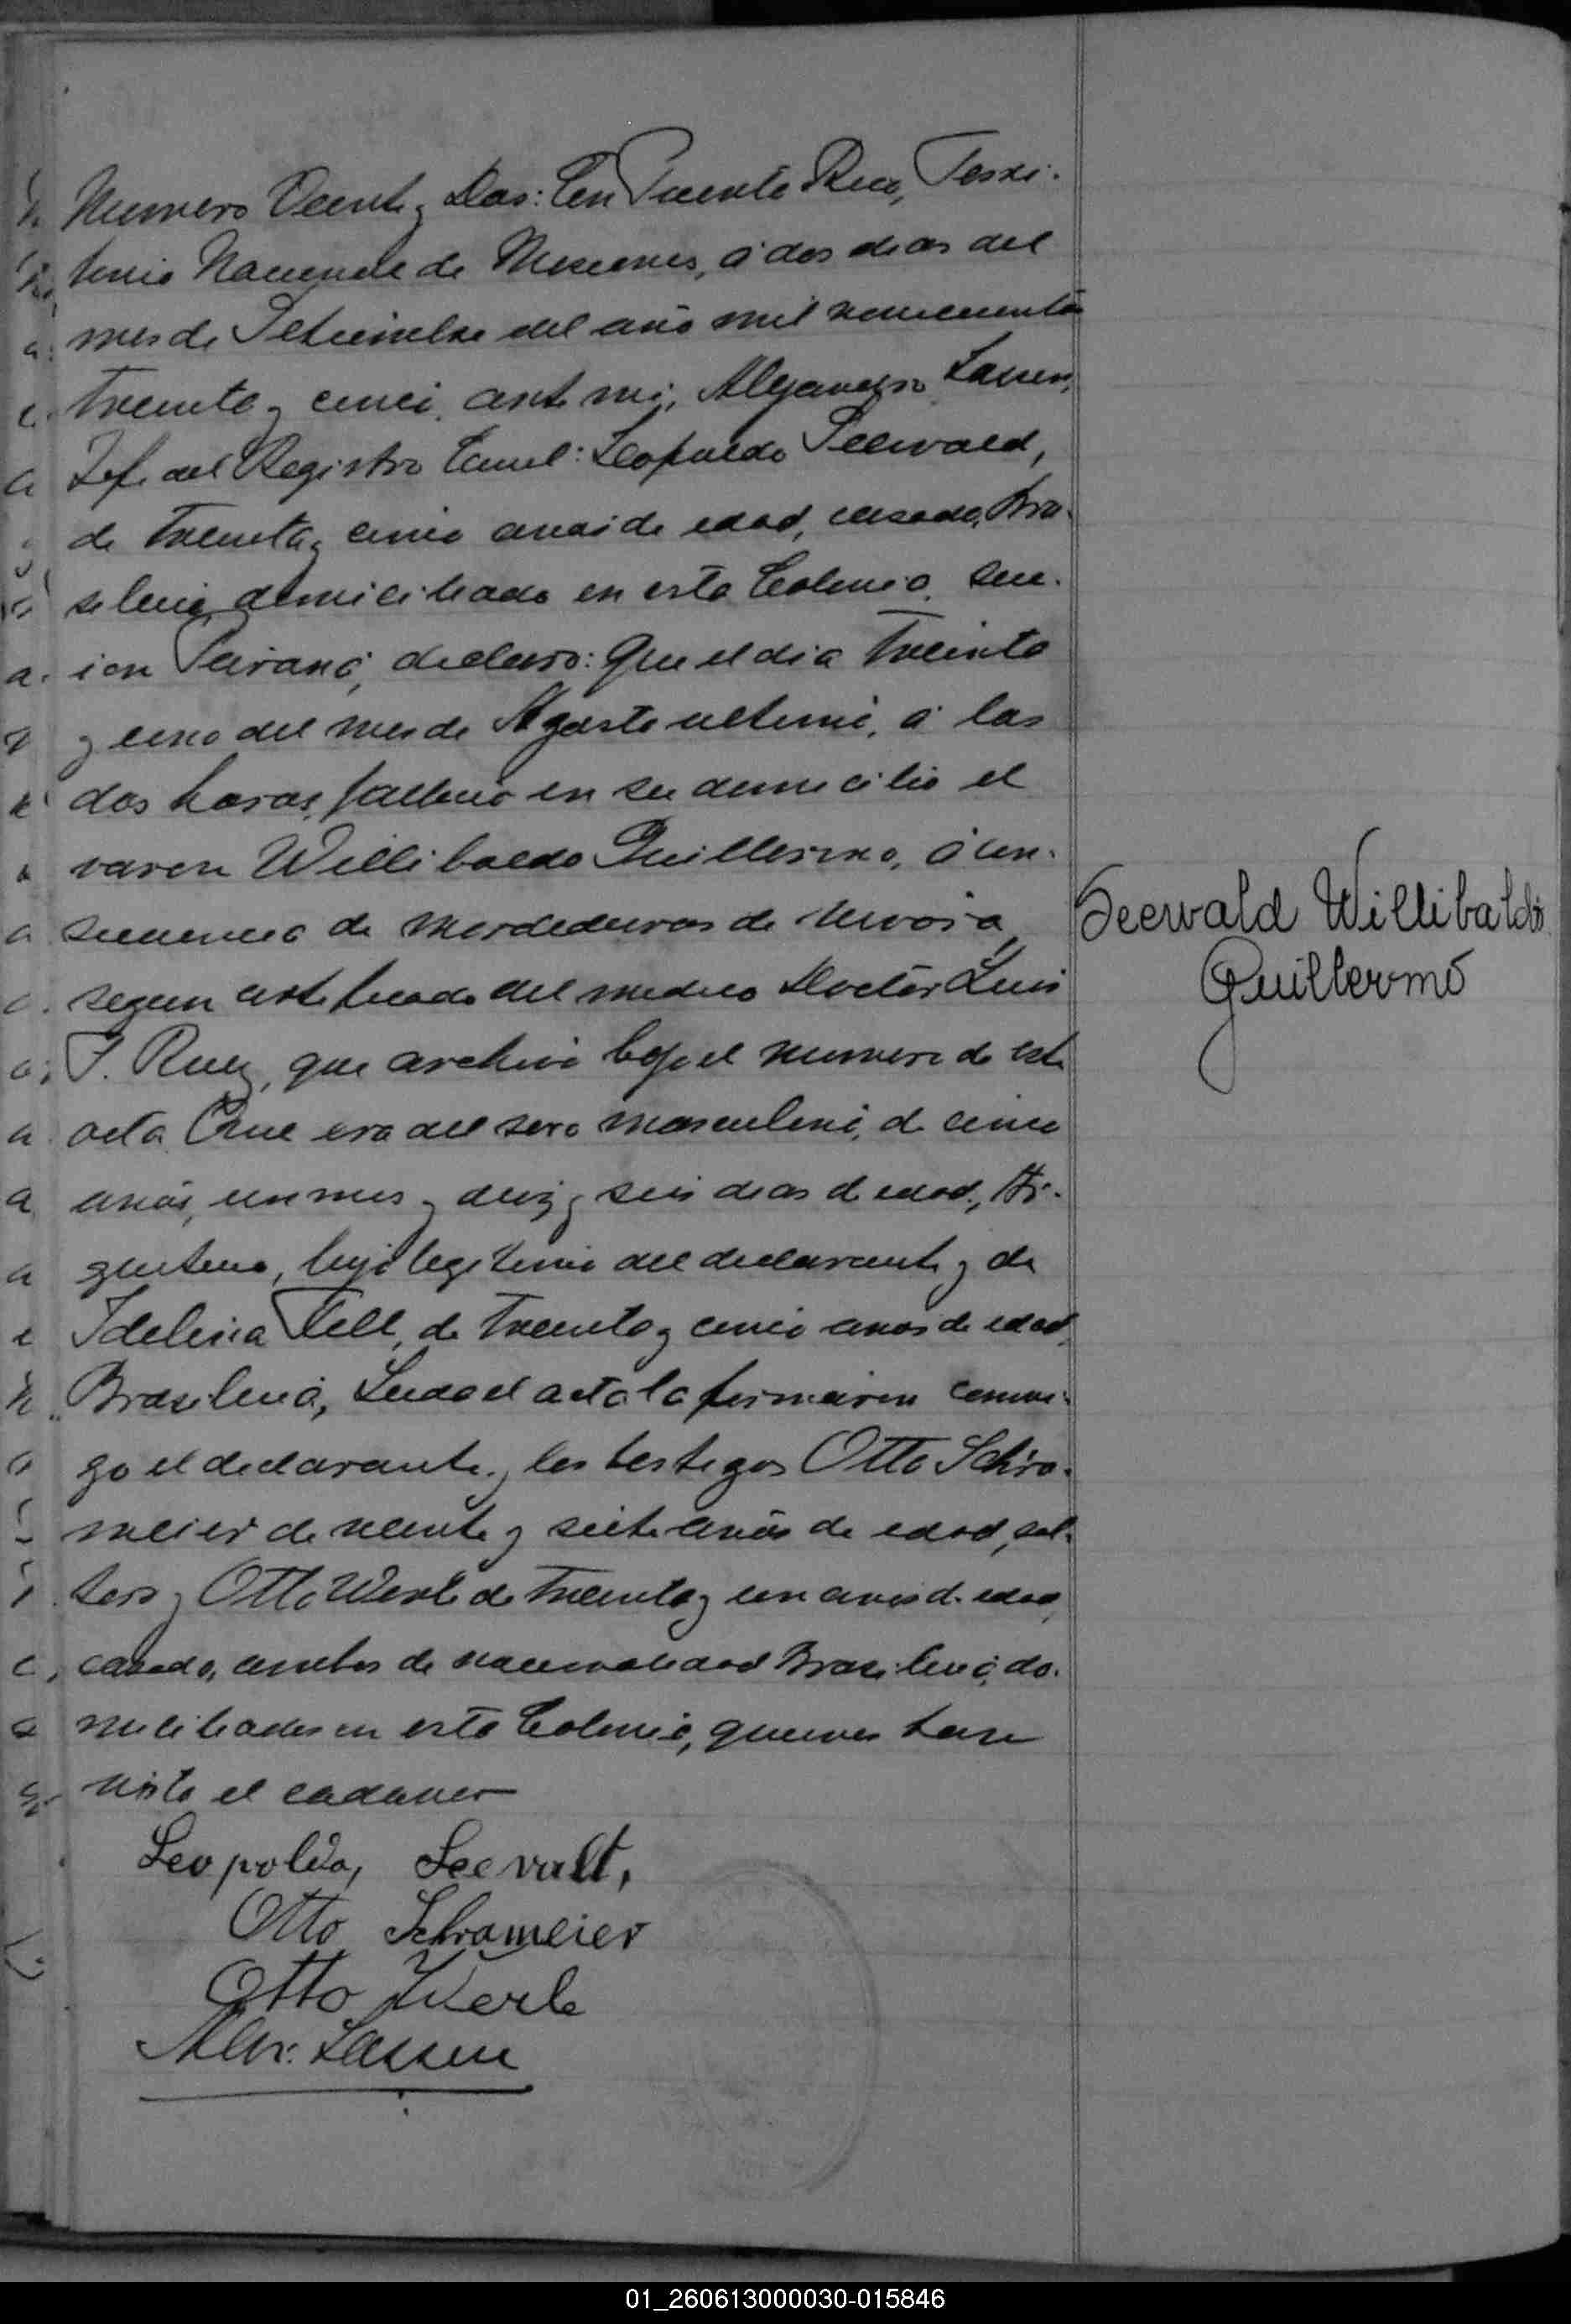 Numero Veinte y Dos: En Puerto Rico, Terri-
torio Nacional de Misiones, á dos dias del
mes de Setiembre del año mil novecientos
Treinta y cinco, ante mi, Alejandro Lassen,
Jefe del Registro Civil: Leopoldo Seewald,
de Treinta y cinco años de edad, casado, Bra-
sileño, domiciliado en esta Colonia, Sec-
ion Paraná, declaró: Que el dia Treinta
y uno del mes de Agosto ultimo, á las
dos horas, falleció en su domicilio el
varon Willibaldo Guillermo, á con-
secuencia de mordeduras de
segun certificado del medico Doctor Luis
Ruez, que archivo bajo el numero de esta
acta. Que era del sexo masculino, de cinco
años, un mes y diez y seis dias de edad, Ar-
gentino, hijo legitimo del declarante y de
Idelina Tell, de Treinta y cinco años de edad,
Brasileña, Leida el acta la firmaron conmi-
go el declarante y los testigos Otto Schra-
meier de veinte y siete años de edad, sol-
tero y Otto Werle de Treinta y un años de edad,
casado, ambos de nacionalidad Brasileña, do-
miciliados en esta Colonia, quienes han
visto el cadaver
Seewald Willibaldo
Guillermo
Leopoldo, Seevalt,
Otto Schrameier
Otto Werle
Alex. Lassen
01_260613000030-015846